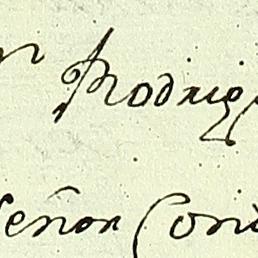 Rodrig
señor Con